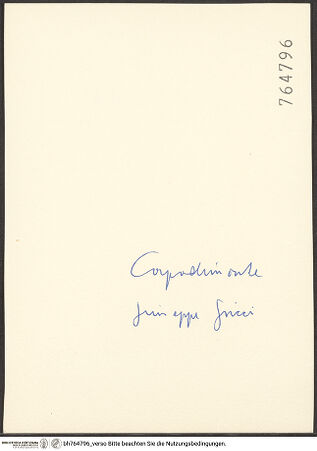 764796
Capodimonte
Giuseppe Gricci
bh764796_verso Bitte beachten Sie die Nutzungsbedingungen.